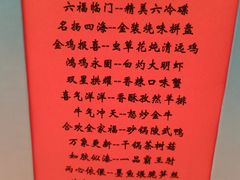 六福临门--精美六冷碟
名扬四海--金装烧味拼盘
金鸡报喜--虫草花炖清远鸡
鸿鸡永图--白灼大明虾
双星拱耀--香辣口味蟹
喜气洋洋--香酥孜然羊排
牛气冲天--怒炒金牛
合欢全家福--砂锅陵武鸭
万象更新--干锅茶树菇
如胶似漆--一品霸王肘
两心依偎--墨鱼煨脆笋丝